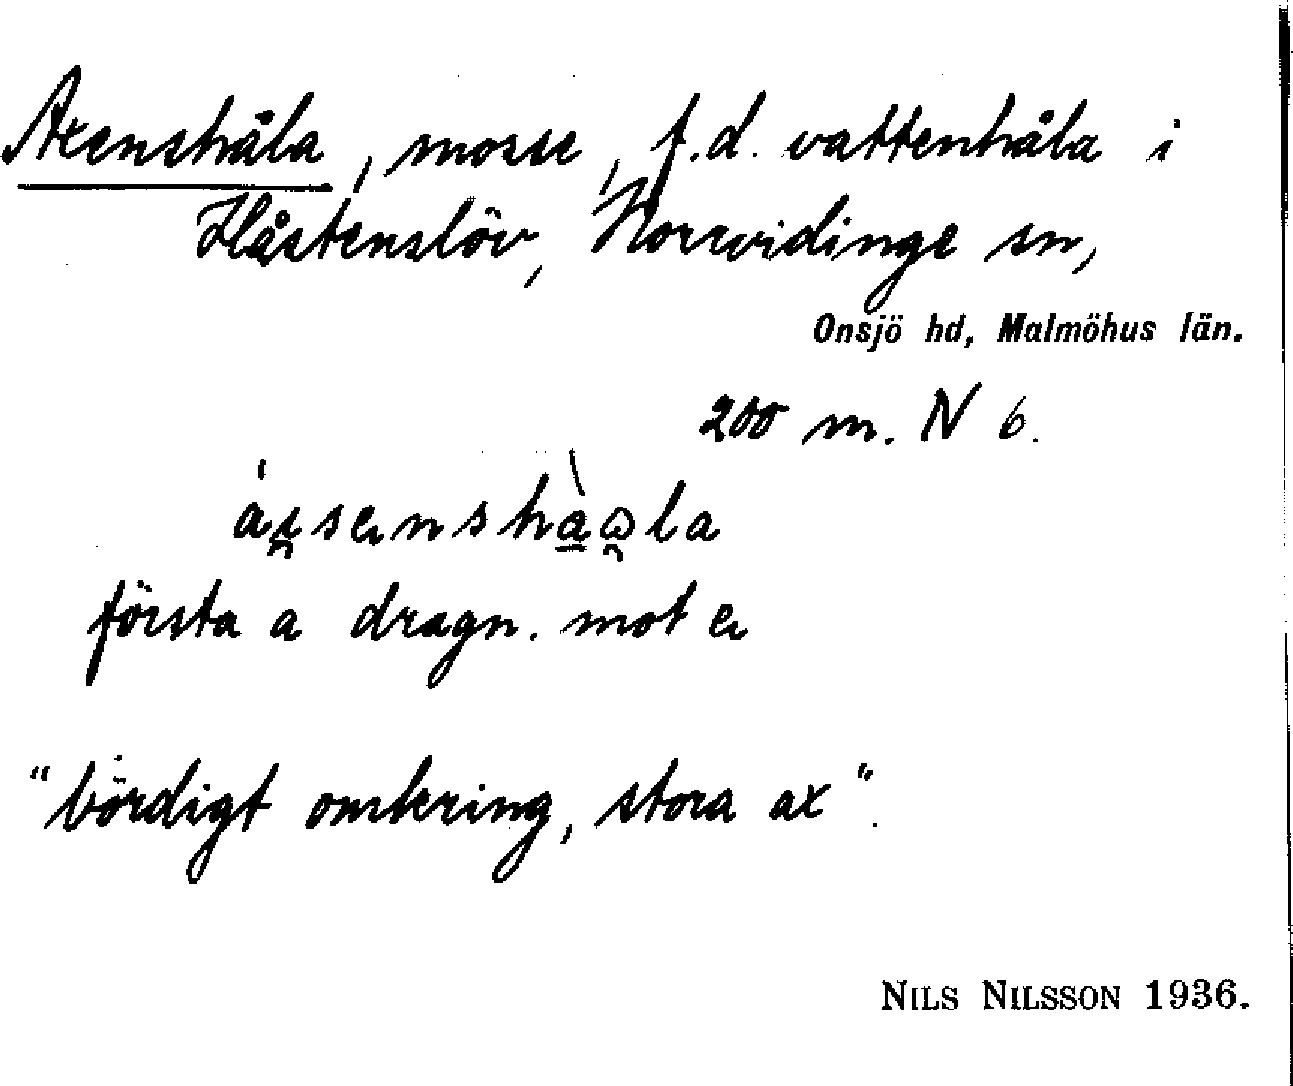 Axenshåla, mosse, f.d. vattenhåla i
Håstenslöv, Norrvidinge sn,
Onsjö hd, Malmöhus län.
200 m. N 6.
första a dragn. mot
"bördigt omkring, stora ax".
NILS NILSSON 1936.